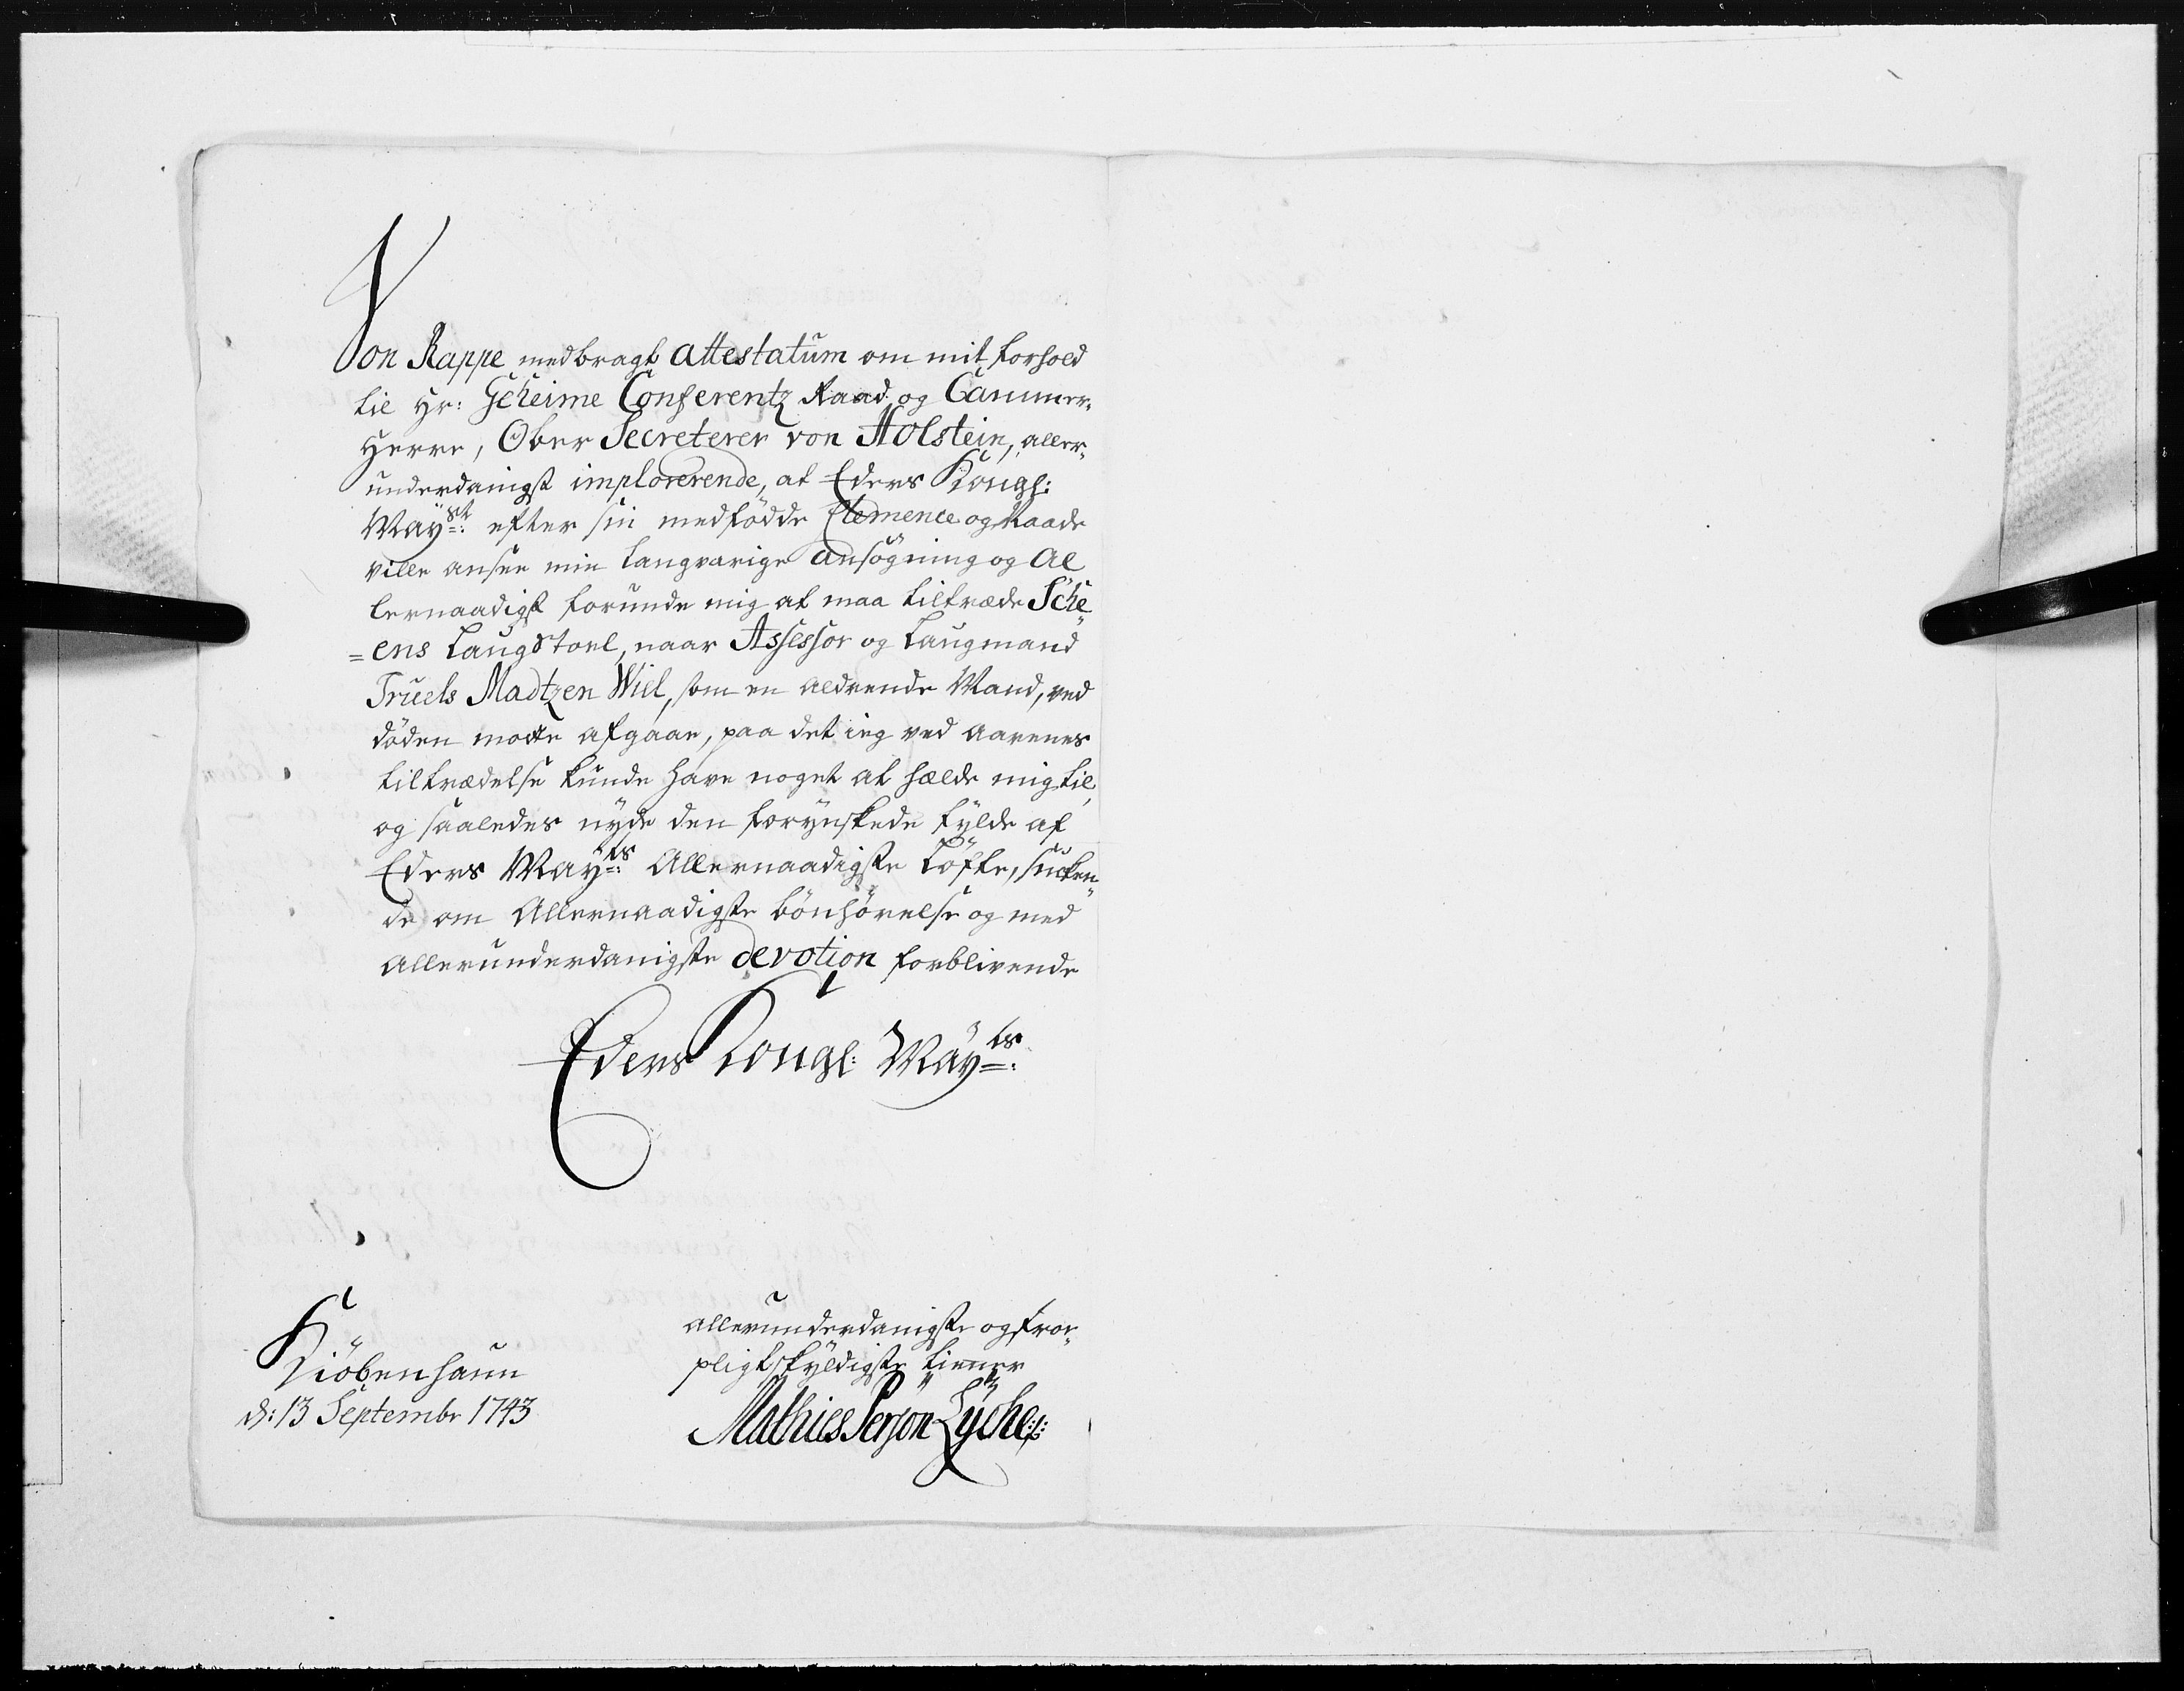 Von Rappe medbragt Attestatum om mit forhold
til Hr: Geheime Conferentz Raad og Cammer-
Herre, Ober Secreterer von Holstein, aller-
underdanigst implorerende, at Eders Kongl:
Mayst: efter sin medfödde Clemence og Naade
ville ansee min langvarige ansögning og Al
lernaadigst forunde mig at maa tiltræde Sche-
=ens Laugstoel, naar Assessor og Laugmand
Truels Madtzen Wiel, som en aldrende Mand, ved
döden motte afgaae, paa det ieg ved aarenes
tiltrædelse kunde have noget at hælde mig til,
og saaledes nyde den forynskede fylde af
Eders Mayts: Allernaadigste Löfte, sucken-
de om Allernaadigste bönhörelse og med
Allerunderdanigste devotion forblivende
Eders Kongl: Mayts:
Kiöbenhaun
d: 13 Septembr 1743
allerunderdanigste og troe-
pligtskyldigste tienner
Mathies Person Lyche